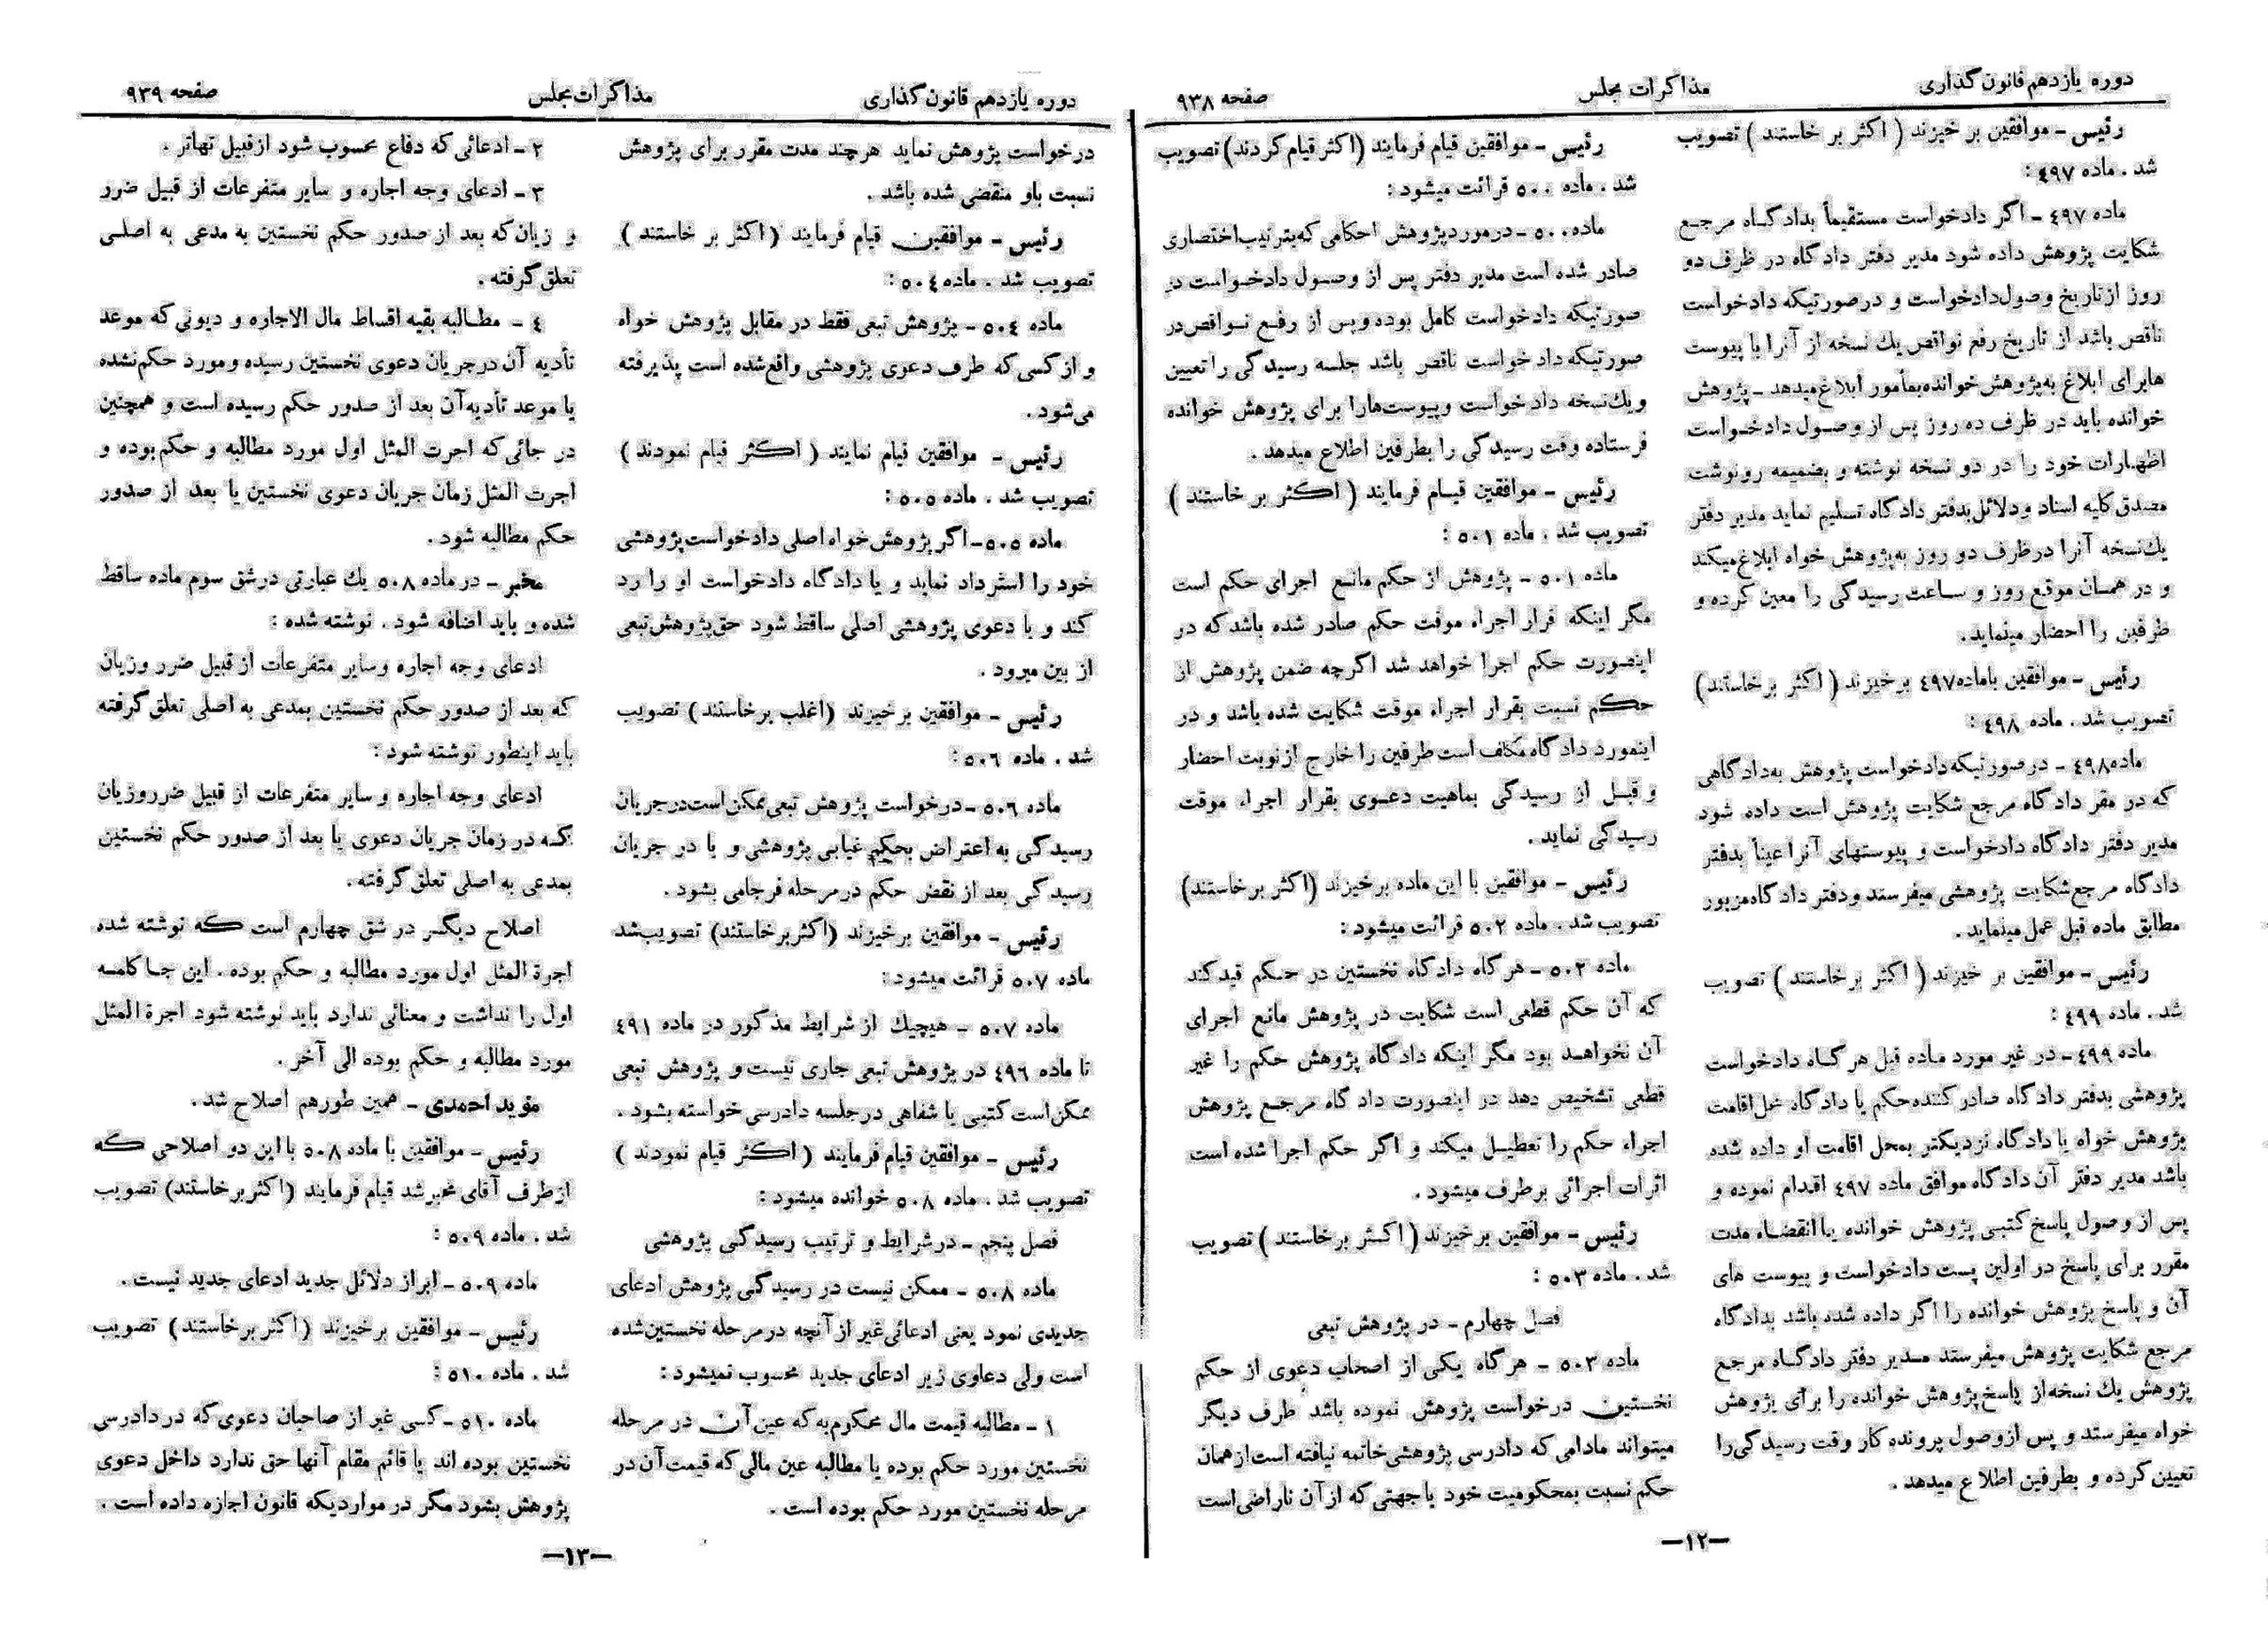 دوره یازدهم قانون گذاری
مذاکرات مجلس
صفحه ۹۳۸
رئیس - موافقین بر خیزند ( اکثر بر خاستند ) تصویب
شد . ماده ۴۹۷ :
ماده ۴۹۷ - اگر دادخواست مستقیماً بدادگاه مرجع
شکایت پژوهش داده شود مدیر دفتر دادگاه در ظرف دو
روز از تاریخ وصول دادخواست و درصورتیکه دادخواست
ناقص باشد از تاریخ رفع نواقص یك نسخه از آنرا با پیوست
ها برای ابلاغ به پژوهش خوانده بمأمور ابلاغ میدهد - پژوهش
خوانده باید در ظرف ده روز پس از وصول دادخواست
اظهارات خود را در دو نسخه نوشته و بضمیمه رونوشت
مصدق کلیه اسناد و دلائل بدفتر دادگاه تسلیم نماید مدیر دفتر
یك نسخه آنرا درظرف دو روز به پژوهش خواه ابلاغ میکند
و در همان موقع روز و ساعت رسیدگی را معین کرده و
طرفین را احضار مینماید.
رئیس - موافقین باماده ۴۹۷ برخیزند ( اکثر برخاستند)
تصویب شد . ماده ۴۹۸ :
ماده ۴۹۸ - درصورتیکه دادخواست پژوهش به دادگاهی
که در مقر دادگاه مرجع شکایت پژوهش است داده شود
مدیر دفتر دادگاه دادخواست و پیوستهای آنرا عیناً بدفتر
دادگاه مرجع شکایت پژوهشی میفرستد ودفتر دادگاه مزبور
مطابق ماده قبل عمل مینماید .
رئیس - موافقین بر خیزند ( اکثر برخاستند ) تصویب
شد . ماده ۴۹۹ :
ماده ۴۹۹ - در غیر مورد ماده قبل هرگاه دادخواست
پژوهشی بدفتر دادگاه صادر کننده حکم یا دادگاه محل اقامت
پژوهش خواه یا دادگاه نزدیکتر بمحل اقامت او داده شده
باشد مدیر دفتر آن دادگاه موافق ماده ۴۹۷ اقدام نموده و
پس از وصول پاسخ کتبی پژوهش خوانده یا انقضاء مدت
مقرر برای پاسخ در اولین پست دادخواست و پیوست های
آن و پاسخ پژوهش خوانده را اگر داده شده باشد بدادگاه
مرجع شکایت پژوهش میفرستد مدیر دفتر دادگاه مرجع
پژوهش یك نسخه از پاسخ پژوهش خوانده را برای پژوهش
خواه میفرستد و پس از وصول پرونده کار وقت رسیدگی را
تعیین کرده و بطرفین اطلاع میدهد .
رئیس - موافقین قیام فرمایند (اکثر قیام کردند) تصویب
شد . ماده ۵۰۰ قرائت میشود :
ماده ۵۰۰ - درمورد پژوهش احکامی که بترتیب اختصاری
صادر شده است مدیر دفتر پس از وصول دادخواست در
صورتیکه دادخواست کامل بوده وپس از رفع نواقص در
صورتیکه دادخواست ناقص باشد جلسه رسیدگی را تعیین
ویك نسخه دادخواست وپیوست هارا برای پژوهش خوانده
فرستاده وقت رسیدگی را بطرفین اطلاع میدهد .
رئیس - موافقین قیام فرمایند ( اکثر بر خاستند )
تصویب شد . ماده ۵۰۱ :
ماده ۵۰۱ - پژوهش از حکم مانع اجرای حکم است
مگر اینکه قرار اجراء موقت حکم صادر شده باشد که در
اینصورت حکم اجرا خواهد شد اگرچه ضمن پژوهش از
حکم نسبت بقرار اجراء موقت شکایت شده باشد و در
اینمورد دادگاه مکلف است طرفین را خارج از نوبت احضار
و قبل از رسیدگی بماهیت دعوی بقرار اجراء موقت
رسیدگی نماید .
رئیس - موافقین با این ماده برخیزند (اکثر برخاستند)
تصویب شد . ماده ۵۰۲ قرائت میشود :
ماده ۵۰۲ - هرگاه دادگاه نخستین در حکم قید کند
که آن حکم قطعی است شکایت در پژوهش مانع اجرای
آن نخواهد بود مگر اینکه دادگاه پژوهش حکم را غیر
قطعی تشخیص دهد در اینصورت دادگاه مرجع پژوهش
اجراء حکم را تعطیل میکند و اگر حکم اجرا شده است
اثرات اجرائی برطرف میشود .
رئیس - موافقین برخیزند ( اکثر برخاستند ) تصویب
شد . ماده ۵۰۳ :
فصل چهارم - در پژوهش تبعی
ماده ۵۰۳ - هرگاه یکی از اصحاب دعوی از حکم
نخستین درخواست پژوهش نموده باشد طرف دیگر
میتواند مادامی که دادرسی پژوهشی خاتمه نیافته است از همان
حکم نسبت بمحکومیت خود یا جهتی که از آن ناراضی است
—۱۲—
دوره یازدهم قانون گذاری
مذاکرات مجلس
صفحه ۹۳۹
درخواست پژوهش نماید هرچند مدت مقرر برای پژوهش
نسبت باو منقضی شده باشد .
رئیس - موافقین قیام فرمایند (اکثر بر خاستند )
تصویب شد . ماده ۵۰٤ :
ماده ۵۰٤ - پژوهش تبعی فقط در مقابل پژوهش خواه
و از کسی که طرف دعوی پژوهشی واقع شده است پذیرفته
می‌شود .
رئیس - موافقین قیام نمایند ( اکثر قیام نمودند )
تصویب شد . ماده ۵۰۵ :
ماده ۵۰۵ - اگر پژوهش خواه اصلی دادخواست پژوهشی
خود را استرداد نماید و یا دادگاه دادخواست او را رد
کند و یا دعوی پژوهشی اصلی ساقط شود حق پژوهش تبعی
از بین میرود .
رئیس - موافقین برخیزند (اغلب برخاستند) تصویب
شد . ماده ۵۰٦ :
ماده ۵۰٦ - درخواست پژوهش تبعی ممکن است درجریان
رسیدگی به اعتراض بحکم غیابی پژوهشی و یا در جریان
رسیدگی بعد از نقض حکم در مرحله فرجامی بشود .
رئیس - موافقین برخیزند (اکثر برخاستند) تصویب شد
ماده ۵۰۷ قرائت میشود :
ماده ۵۰۷ - هیچیك از شرایط مذکور در ماده ٤۹۱
تا ماده ٤۹٦ در پژوهش تبعی جاری نیست و پژوهش تبعی
ممکن است کتبی یا شفاهی در جلسه دادرسی خواسته بشود .
رئیس - موافقین قیام فرمایند ( اکثر قیام نمودند )
تصویب شد . ماده ۵۰۸ خوانده میشود :
فصل پنجم - در شرایط و ترتیب رسیدگی پژوهشی
ماده ۵۰۸ - ممکن نیست در رسیدگی پژوهش ادعای
جدیدی نمود یعنی ادعائی غیر از آنچه در مرحله نخستین شده
است ولی دعاوی زیر ادعای جدید محسوب نمیشود :
۱ - مطالبه قیمت مال محکوم به که عین آن در مرحله
نخستین مورد حکم بوده یا مطالبه عین مالی که قیمت آن در
مرحله نخستین مورد حکم بوده است .
۲ - ادعائی که دفاع محسوب شود از قبیل تهاتر .
۳ - ادعای وجه اجاره و سایر متفرعات از قبیل ضرر
و زیان که بعد از صدور حکم نخستین به مدعی به اصلی
تعلق گرفته .
٤ - مطالبه بقیه اقساط مال الاجاره و دیونی که موعد
تأدیه آن درجریان دعوی نخستین رسیده و مورد حکم نشده
یا موعد تأدیه آن بعد از صدور حکم رسیده است و همچنین
در جائی که اجرت المثل اول مورد مطالبه و حکم بوده و
اجرت المثل زمان جریان دعوی نخستین یا بعد از صدور
حکم مطالبه شود .
مخبر - در ماده ۵۰۸ یك عبارتی در شق سوم ماده ساقط
شده و باید اضافه شود . نوشته شده :
ادعای وجه اجاره وسایر متفرعات از قبیل ضرر وزیان
که بعد از صدور حکم نخستین بمدعی به اصلی تعلق گرفته
باید اینطور نوشته شود :
ادعای وجه اجاره و سایر متفرعات از قبیل ضرروزیان
که در زمان جریان دعوی یا بعد از صدور حکم نخستین
بمدعی به اصلی تعلق گرفته .
اصلاح دیگر در شق چهارم است که نوشته شده
اجرة المثل اول مورد مطالبه و حکم بوده . این جا کلمه
اول را نداشت و معنائی ندارد باید نوشته شود اجرة المثل
مورد مطالبه و حکم بوده الی آخر .
مؤید احمدی - همین طورهم اصلاح شد .
رئیس - موافقین با ماده ۵۰۸ با این دو اصلاحی که
از طرف آقای مخبر شد قیام فرمایند (اکثر برخاستند) تصویب
شد . ماده ۵۰۹ :
ماده ۵۰۹ - ابراز دلائل جدید ادعای جدید نیست .
رئیس - موافقین برخیزند (اکثر برخاستند) تصویب
شد . ماده ۵۱۰ :
ماده ۵۱۰ - کسی غیر از صاحبان دعوی که در دادرسی
نخستین بوده اند یا قائم مقام آنها حق ندارد داخل دعوی
پژوهش بشود مگر در مواردیکه قانون اجازه داده است .
—۱۳—